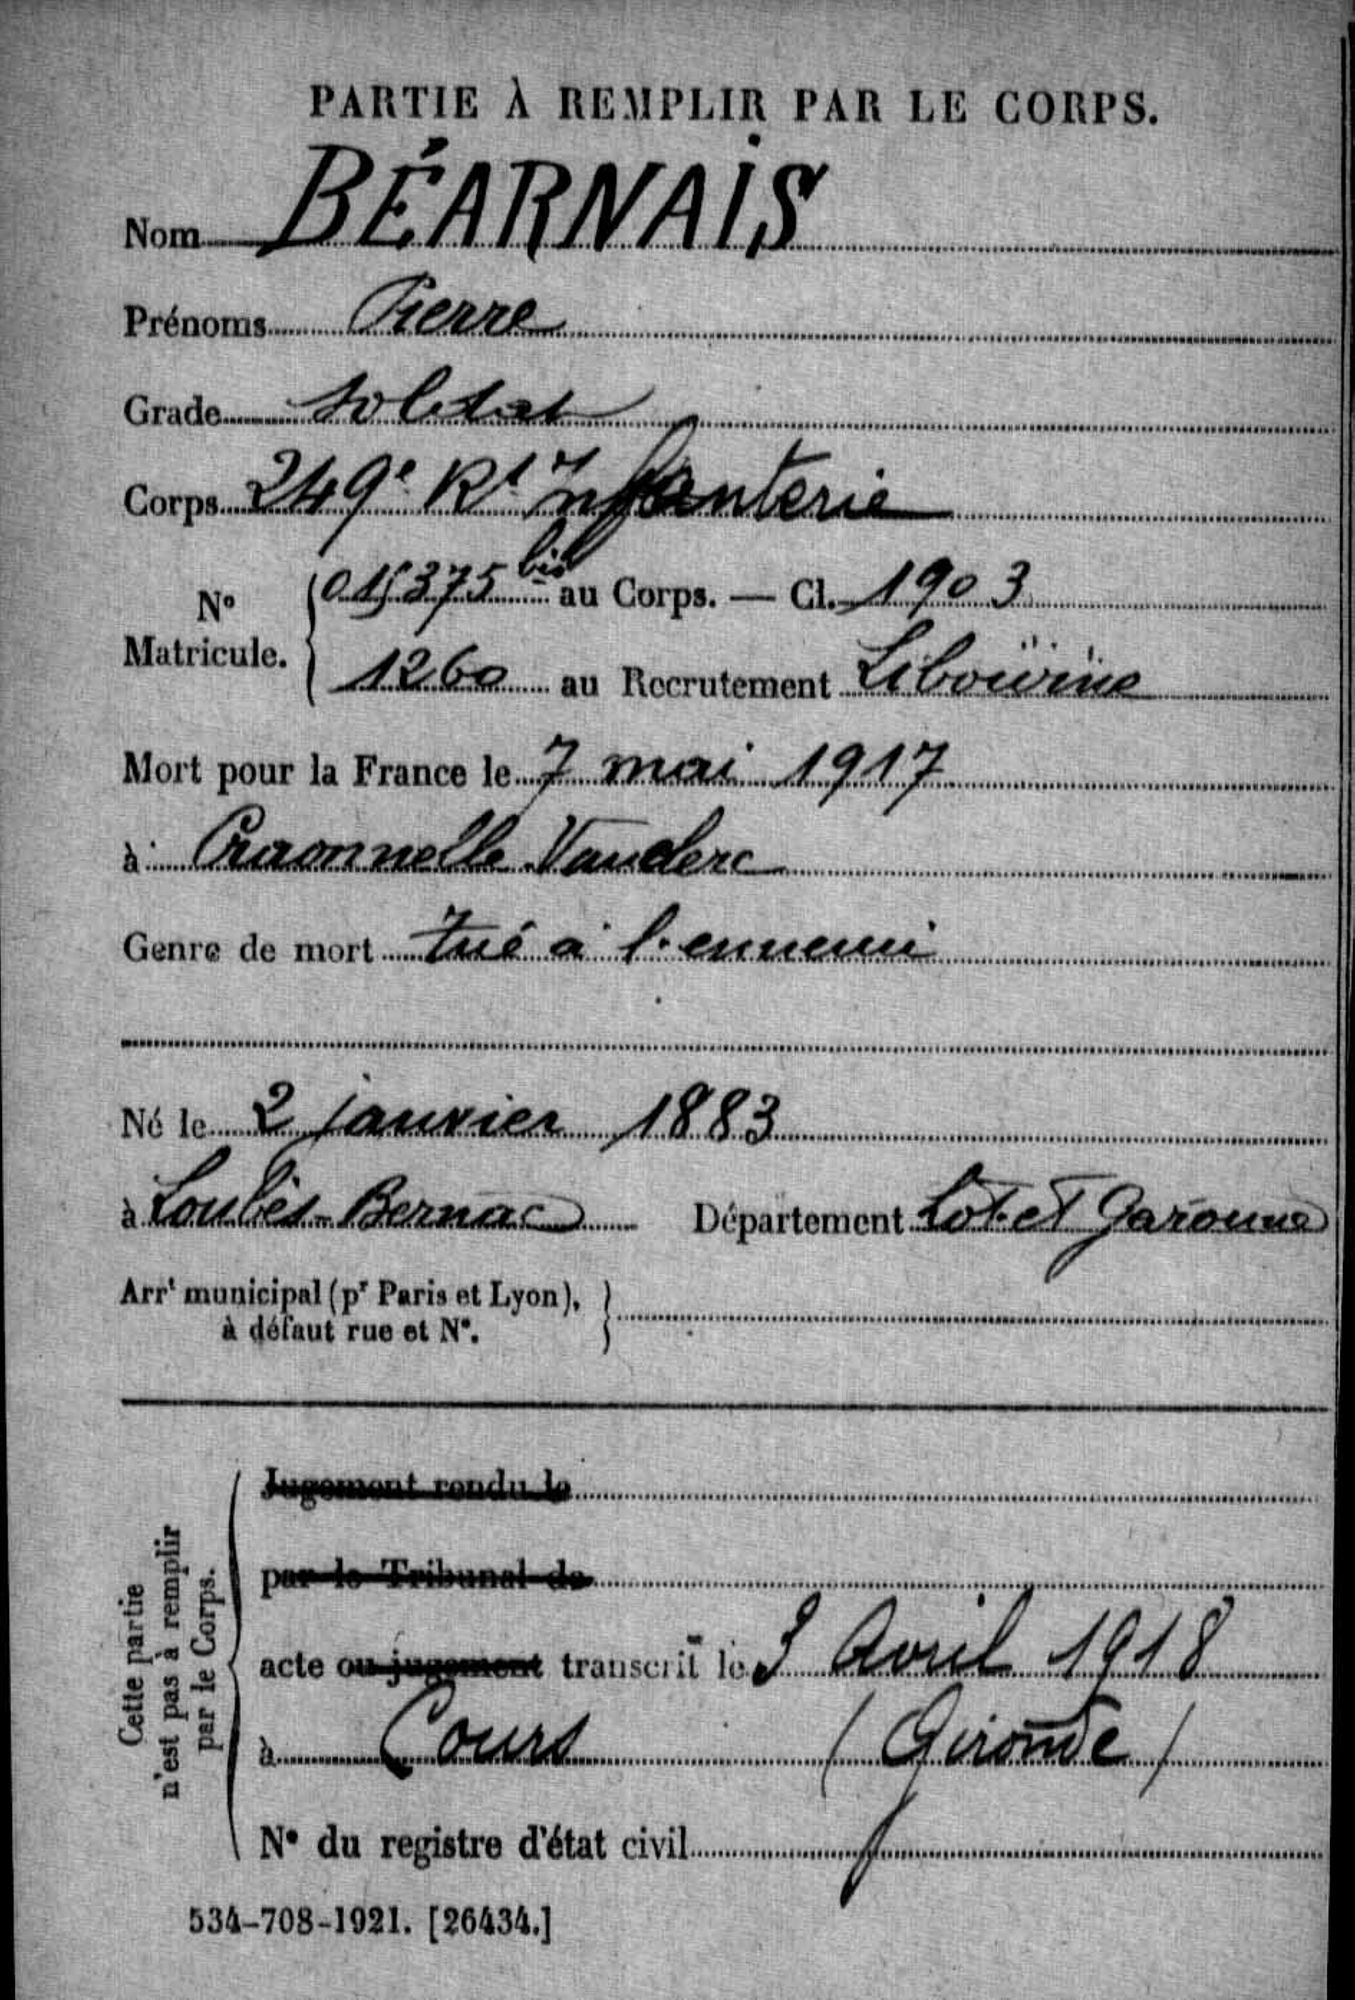 PARTIE À REMPLIR PAR LE CORPS.
Nom BÉARNAIS
Prénoms Pierre
Grade soldat
Corps 249e Rt Infanterie
No Matricule. 015375 bis au Corps. — Cl. 1903
1260 au Recrutement Libourne
Mort pour la France le 7 mai 1917
à Craonnelle Vauclerc
Genre de mort tué à l'ennemi
Né le 2 janvier 1883
à Loubès-Bernac Département Lot et Garonne
Arrt municipal (pr Paris et Lyon),
à défaut rue et No.
Cette partie
n'est pas à remplir
par le Corps.
Jugement rendu le
par le Tribunal de
acte ou jugement transcrit le 3 Avril 1918
à Cours (Gironde)
No du registre d'état civil
534-708-1921. [26434.]